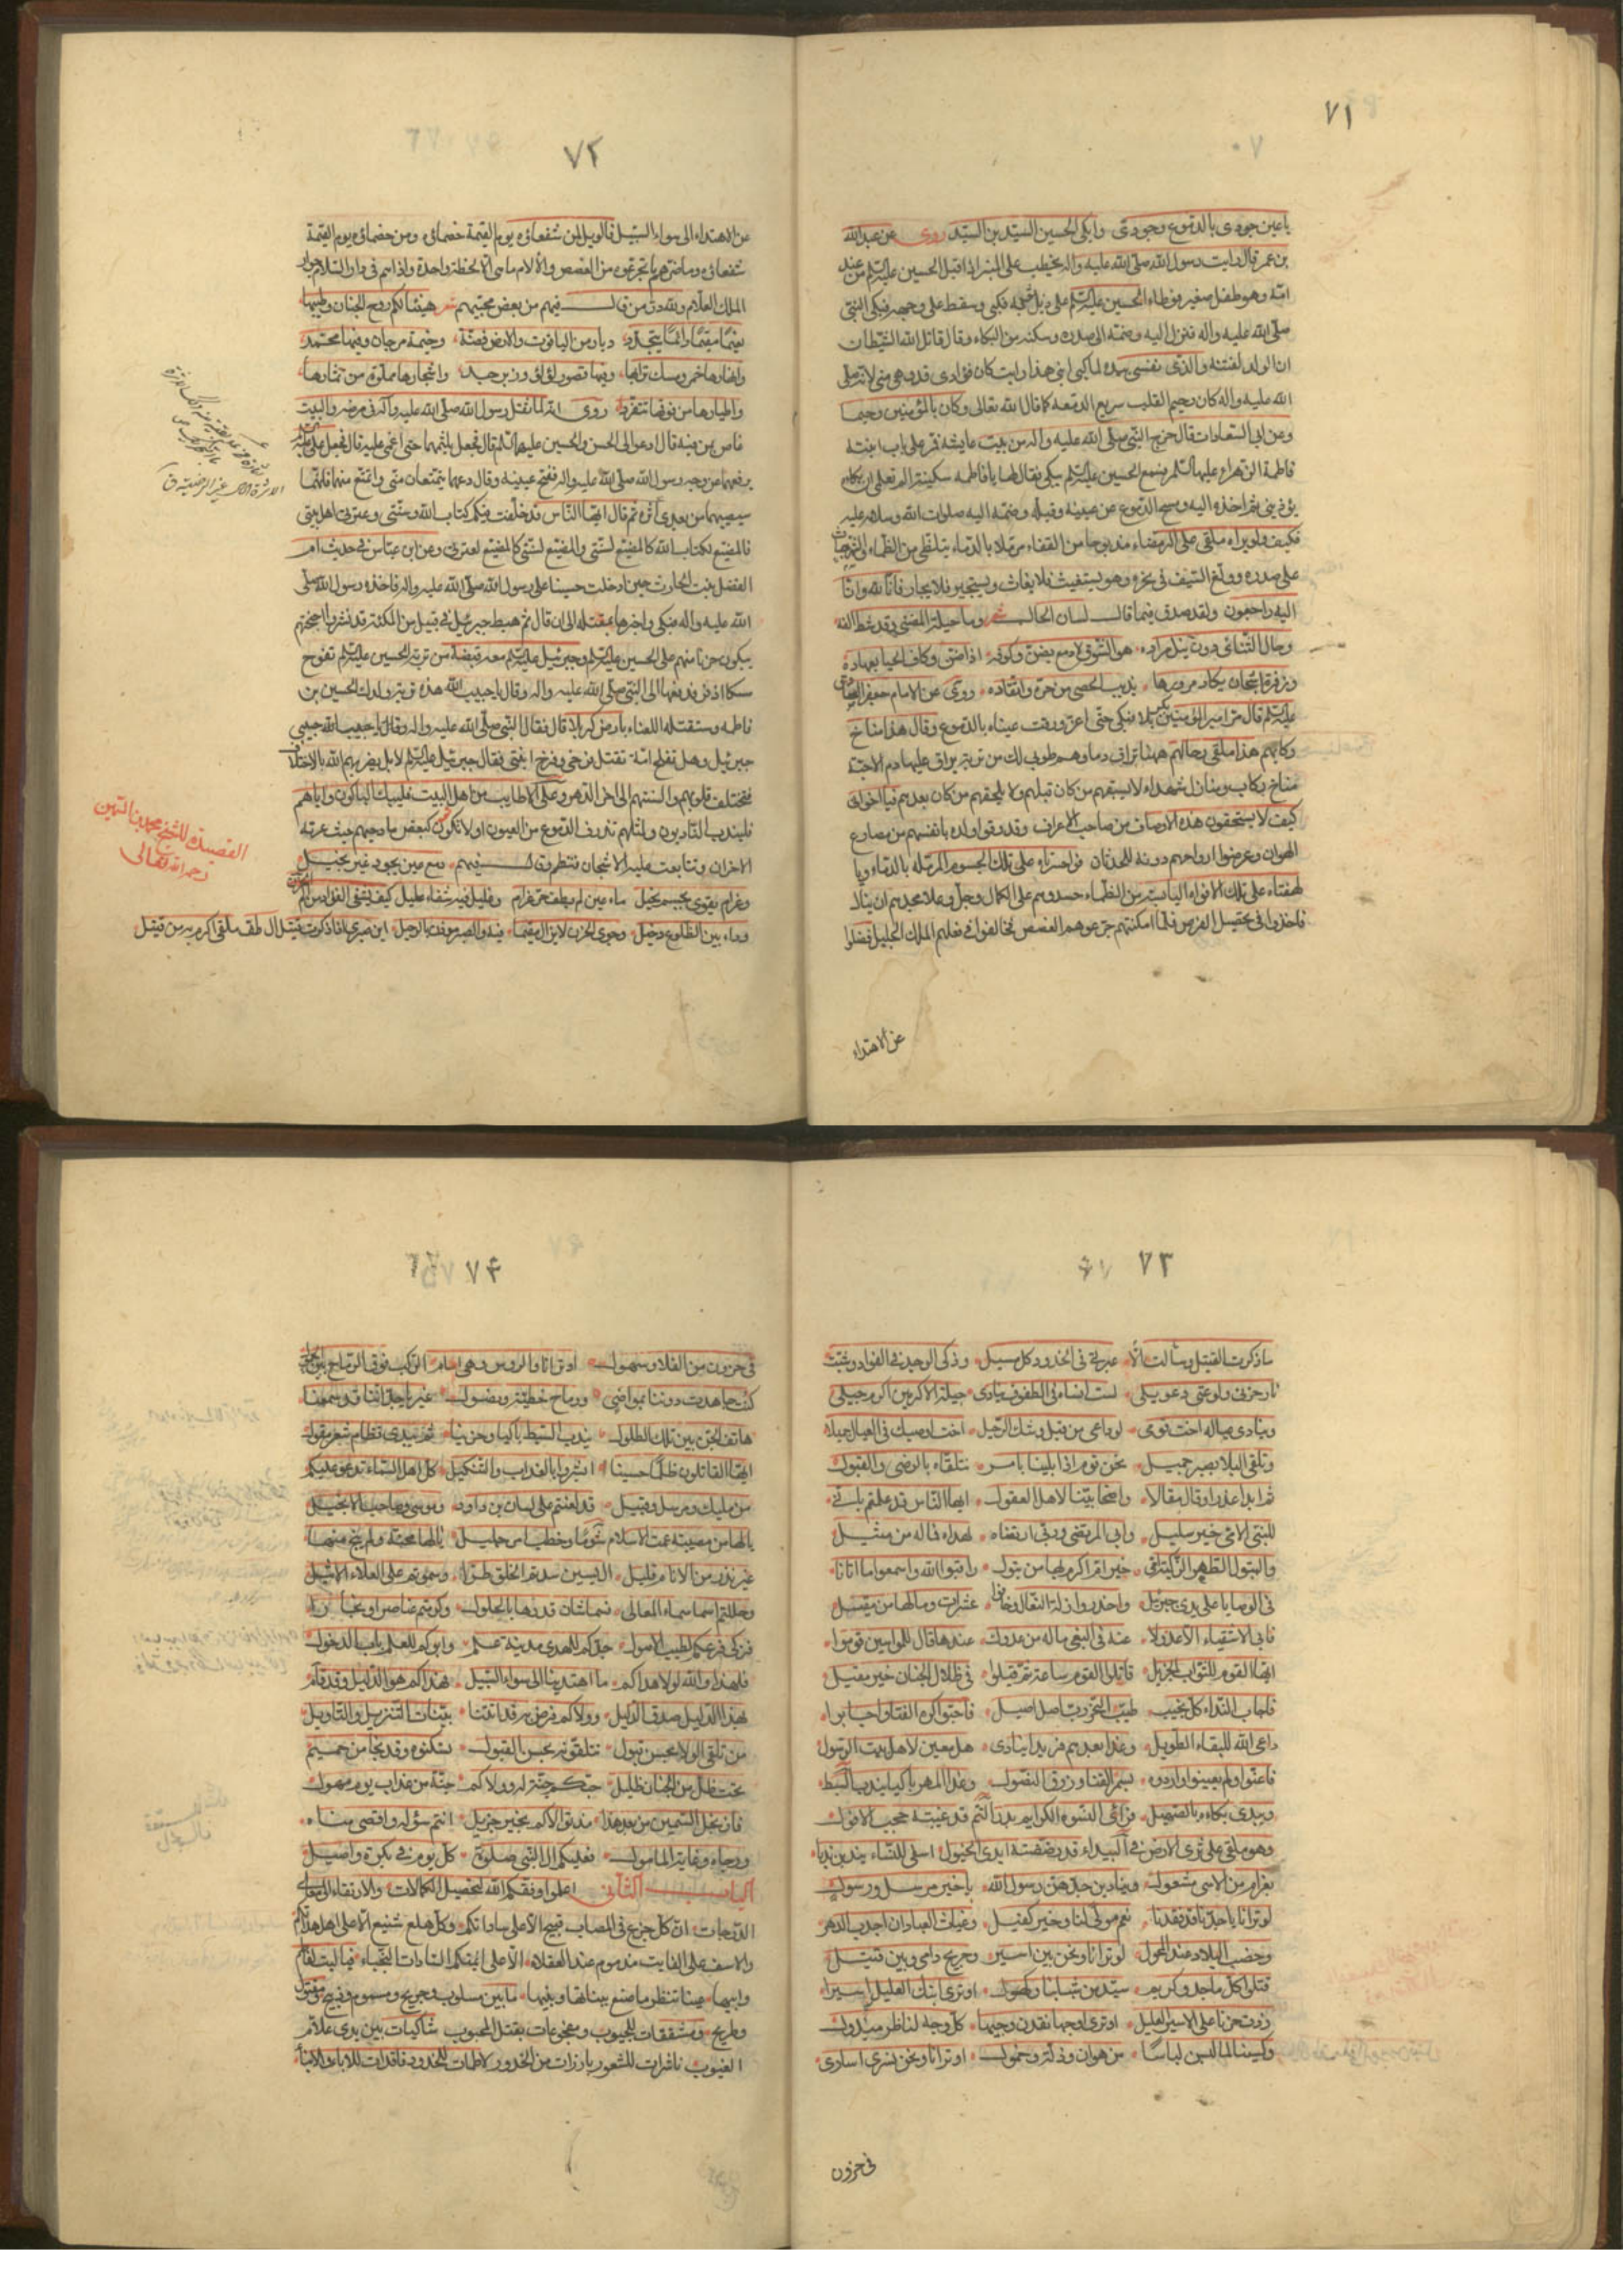 ٧١
يا عين جودى بالدموع وجودى وابكى الحسين السيد بن السيد روى عن عبدالله
بن عمر قال رايت رسول الله صلى الله عليه واله يخطب على المنبر اذا قبل الحسين عليه السلم من عند
امه وهو طفل صغير فوطاء الحسين عليه السلم على ذيل فبكى وسقط على وجهه فبكى النبى
صلى الله عليه واله فنزل اليه وضمه الى صدره وسكنه من البكاء وقال قاتل الله الشيطان
ان الولد لفتنه والذى نفسى بيده لما كبى ابنى هذا رايت كان فؤادى قد وهى منى لانه صلى
الله عليه واله كان رحيم القلب سريع الدمعه كما قال الله تعالى وكان بالمؤمنين رحيما
وعن ابى السعادات قال خرج النبى صلى الله عليه واله من بيت عايشه فمر على باب ابنته
فاطمة الزهراء عليها السلم فسمع الحسين عليه السلم يبكى فقال لها يا فاطمه سكتيه الم تعلمى ان بكاه
يؤذينى ثم اخذه اليه ومسح الدموع عن عينيه وقبله وضمه اليه صلوات الله وسلامه عليه
فكيف ولو يراه ملقى على الرمضاء مذبوحا من القفاء مرملا بالدماء يتلظى من الظماء
على صدره وولغ السيف فى نحره وهو يستغيث فلا يغاث ويستجير فلا يجار فانا لله وانا
اليه راجعون ولقد صدق فيما قال لسان الحال شعر وما حيلة المضنى وقد شط الفه
وحال التنائى دون نيل مراده هو الشوق لا دمع يضن وكوفه اذا ضن وكاف الحيا بعهاده
وزفرة اشجان يكاد مرورها يذيب الحصى من حره واتقاده روى عن الامام جعفر الصادق
عليه السلم قال مر امير المؤمنين بكربلا فبكى حتى اغرورقت عيناه بالدموع وقال هذا مناخ
ركابهم هذا ملقى رحالهم ههنا تراق دماوهم طوبى لك من تربة يراق عليها دم الاحبه
مناخ ركاب ومنازل شهداء لا يسبقهم من كان قبلهم ولا يلحقهم من كان بعدهم فيا اخوانى
كيف لا يستحقون هذه الاوصاف من صاحب الاعراف وقد وقوا ولده بانفسهم من مصارع
الهوان وعرضوا ارواحهم دونه للحدثان فوا حسرتاه على تلك الجسوم المرمله بالدماء ويا
لهفتاه على تلك الافواه اليابسه من الظماء حسدوهم على الكمال وجل وعلا مجدهم ان ينالا
فاخذوا فى تحصيل الفرص فلما امكنتهم جرعوهم الغصص فخالفوا فى فعلهم الملك الجليل فضلوا
عن الاهتداء
٧٢
عن الاهتداء الى سواء السبيل فالويل لمن شفعاؤه يوم القيمة خصماؤه ومن خصماؤه يوم القيمة
شفعاؤه وما ضرهم ما تجرعوه من الغصص والالام ما هى الا لحظة واحدة واذا هم فى دار السلام جوار
الملك العلام ولله در من قال فيهم من بعض محبيهم شعر هنيئا لكم روح الجنان وطيبها
نعيما مقيما دائما يتجدد ديار من الياقوت والارض فضة وخيمة مرجان وفيها محتمد
وانهارها خمر ومسك ترابها وفيها قصور لؤلؤ وزبرجد واشجارها مملوة من ثمارها
واطيارها من فوقها تتغرد روى انه لما ثقل رسول الله صلى الله عليه واله فى مرضه والبيت
غاص بمن فيه قال ادعوا الى الحسن والحسين عليهما السلم قال فجعل يلثمهما حتى اغمى عليه قال فجعل على عليه السلم
يرفعهما عن وجه رسول الله صلى الله عليه واله ففتح عينيه وقال دعهما يتمتعان منى واتمتع منهما فانهما
سيصيبهما من بعدى اثرة ثم قال ايها الناس قد خلفت فيكم كتاب الله وسنتى وعترتى اهل بيتى
فالمضيع لكتاب الله كالمضيع لسنتى والمضيع لسنتى كالمضيع لعترتى وعن ابن عباس فى حديث ام
الفضل بنت الحارث حين ادخلت حسينا على رسول الله صلى الله عليه واله فاخذه رسول الله صلى
الله عليه واله فبكى واخبرها بمقتله الى ان قال ثم هبط جبرئيل فى قبيل من الملئكة قد نشروا اجنحتهم
يبكون حزنا منهم على الحسين عليه السلم وجبرئيل عليه السلم معه قبضة من تربة الحسين عليه السلم تفوح
مسكا اذفر فدفعها الى النبى صلى الله عليه واله وقال يا حبيب الله هذه تربة ولدك الحسين بن
فاطمه وستقتله اللعناء بارض كربلا قال فقال النبى صلى الله عليه واله وقال يا حبيب الله حبيبى
جبرئيل وهل تفلح امة تقتل فرخى وفرخ ابنتى فقال جبرئيل عليه السلم لا بل يضربهم الله بالاختلاف
فتختلف قلوبهم والسنتهم الى اخر الدهر وعلى الاطايب من اهل البيت فليبك الباكون واياهم
فليندب النادبون ولمثلهم تذرف الدموع من العيون اولا تكون كبعض مادحيهم حيث عرته
الاحزان وتتابعت عليه الاشجان فنظم وقال فيهم دمع عين يجود غير بخيل
وغرام يقوى بجسم نحيل ماء عين لم يطف حر غرام وغليل فيه شفاء عليل كيف يشفى الفؤاد من الم الحزن
وداء بين الضلوع دخيل وجوى الحزن لا يزال مقيما فيه والصبر موذن بالرحيل اين صبرى اذا ذكرت قتيل ال طف ملقى اكرم به من قتيل
القصيدة للشيخ محمد بن السمين
رحمه الله تعالى
٧٣
ما ذكرت القتيل وسالت الا عبرتى فى الخدود كل مسيل وذكى الوجد فى الفؤاد وشبت
نار حزنى ولوعتى وعويلى لست انساه فى الطفوف ينادى
وينادى عياله اخت قومى لوداعى من قبل وشك الرحيل اخت اوصيك فى العيال جميلا
وتلقى البلا بصبر جميل نحن قوم اذا بلينا بامر نتلقاه بالرضى والقبول
ثم ابدا عذرا وقال مقالا واضحا بينا لاهل العقول ايها الناس قد علمتم بانى
للنبى الامى خير سليل وابى المرتضى وربى ارتضاه لهداه فما له من مثيل
والبتول الطهر الزكية امى خير ام اكرم بها من بتول راقبوا الله واسمعوا ما اتانا
فى الوصايا على يدى جبرئيل واحذروا زلة النعال وخافوا عثرات ومالها من مقيل
فابى الاشقياء الا عدولا عنه فى البغى ماله من عدول عندها قال للمواسين قوموا
ايها القوم للثواب الجزيل قاتلوا القوم ساعة ثم قيلوا فى ظلال الجنان خير مقيل
فاجاب النداء كل نجيب طيب النجر رب اصل اصيل فاحبوا كره الفناء واجابوا
داعى الله للبقاء الطويل وغدا بعدهم فريدا ينادى هل معين لاهل بيت الرسول
فاغتوا ولم يعينوا واردوه بسمر القنا وزرق النصول وغدا المهر باكيا يندب السبط
ويبدى بكاءه بالصهيل فراى النسوه الكرايم بدر التم قد غيبته حجب الافول
وهو ملقى على ثرى الارض فى البيداء قد رضضته ايدى الخيول اسفى للنساء يندبن ندبا
بغرام من الاسى مشعول وينادين جدهن رسول الله يا خير مرسل ورسول
لو ترانا يا جدنا قد فقدنا نعم مولى لنا وخير كفيل وغياث العباد ان اجدب الدهر
وخصب البلاد عند المحول لو ترانا ونحن بين اسير وجريح دامى وبين قتيل
قتلى كل ماجد وكريم سيد من شبابنا وكهول او ترى ابنك العليل اسيرا
زدت حزنا على الاسير العليل او ترى اوجها فقدن وجيها كل وجه لناظر مبذول
وكسينا لما لبسن لباسا من هوان وذلة وخمول او ترانا ونحن نسرى اسارى
فى حزون
٧٤
فى حزون من الفلا وسهول او ترانا والروس وهى امام الركب فوق الرماح
كنت جاهدت دوننا بمواضى ورماح خطية ونصول غير يا جدنا اننا قد سمعنا
هاتف الجن بين تلك الطلول يندب السبط باكيا وحزينا ثم يبدى نظام شعر مقول
ايها القاتلون ظلما حسينا ابشروا بالعذاب والتنكيل كل اهل السماء تدعو عليكم
من مليك ومرسل وقبيل قد لعنتم على لسان بن داود وموسى وصاحب الانجيل
يالها من مصيبة عمت الاسلام شوما وخطب امر جليل يالها محنة ولم ينج منها
غير نزر من الانام قليل ال يسين سدتم الخلق طرا وسموتم على العلاء الاثيل
وحللتم اسما سماء المعالى فسما شان قدرها بالحلول وكرمتم عناصرا ونجارا
فزكى فرعكم لطيب الاصول جدكم للهدى مدينة علم وابوكم للعلم باب الدخول
فلهذا والله لولا هداكم ما اهتدينا الى سواء السبيل فهداكم هو الدليل وقد قام
لهذا الدليل صدق الدليل وولاكم فرض به قد اتتنا بينات التنزيل والتاويل
من تلقى الولا بحسن قبول نتلقونه بحسن القبول يسكنوه وقد نجا من جحيم
تحت ظل من الجنان ظليل حبكم جنة له وولاكم جنة من عذاب يوم مهول
فابن نجل السمين من بعد هذا فد بقو الاكم بخير جزيل انتم سؤله واقصى مناه
ورجاه وغاية المامول فعليكم ال النبى صلوة كل يوم فى بكرة واصيل
الباب الثانى اعلموا وفقكم الله لتحصيل الكمالات والارتقاء الى معالى
الدرجات ان كل جزع فى المصاب قبيح الا على ساداتكم وكل هلع شنيع الا على اهل هداتكم
والاسف على الفايت مذموم عند العقلاء الا على ائمتكم السادات النجباء فيا ليت لفاطم
وابيها عينا تنظر ما صنع ببناتها وبنيها ما بين مسلوب وجريح ومسموم وذبيح ومقتول
وطريح ومشققات للجيوب ومفجوعات بقتل المحبوب شاكيات بين يدى علام
الغيوب ناشرات للشعور بارزات من الخدور لاطمات للخدود فاقدات للاباء والابناء